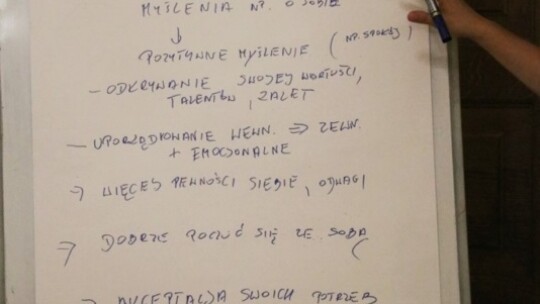 MYŚLENIA NP. O SOBIE
↓
POZYTYWNE MYŚLENIE (NP. SPOKÓJ)
- ODKRYWANIE SWOJEJ WARTOŚCI,
TALENTÓW, ZALET
- UPORZĄDKOWANIE WEWN. => ZEWN.
+ EMOCJONALNE
→ WIĘCEJ PEWNOŚCI SIEBIE, ODWAGI
→ DOBRZE POCZUĆ SIĘ ZE SOBĄ
→ AKCEPTACJA SWOICH POTRZEB